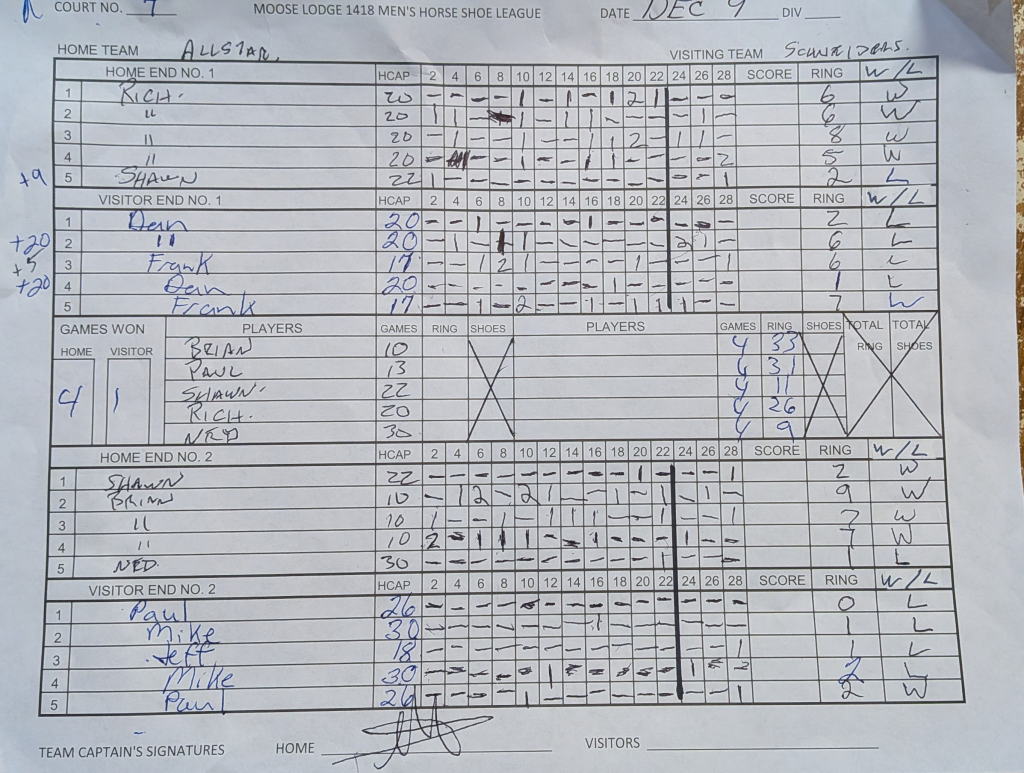 COURT NO. 7 MOOSE LODGE 1418 MEN'S HORSE SHOE LEAGUE DATE DEC 9 DIV
HOME TEAM ALLSTAR. VISITING TEAM SCHNEIDERS.
HOME END NO. 1 HCAP 2 4 6 8 10 12 14 16 18 20 22 24 26 28 SCORE RING W/L
1 RICH. 20 - - - - 1 - 1 - 1 2 1 - - - 6 W
2 " 20 1 1 - - 1 - 1 1 - - - - 1 - 6 W
3 " 20 - 1 - - 1 - - 1 1 2 - 1 1 - 8 W
4 " 20 - - - 1 - - 1 1 - - - - 2 5 W
+9 5 SHAWN 22 1 - - - - - - - - - - - - 1 2 L
VISITOR END NO. 1 HCAP 2 4 6 8 10 12 14 16 18 20 22 24 26 28 SCORE RING W/L
1 Dean 20 - - 1 - - - - 1 - - - - - - 2 L
+20 2 " 20 - 1 - 1 1 - - - - - - 2 1 - 6 L
+5 3 Frank 17 - - 1 2 1 - - - - 1 - - - 1 6 L
+20 4 Dean 20 - - - - - - - - 1 - - - - - 1 L
5 Frank 17 - - 1 - 2 - - 1 - 1 1 1 - - 7 W
GAMES WON PLAYERS GAMES RING SHOES PLAYERS GAMES RING SHOES TOTAL RING TOTAL SHOES
HOME VISITOR
4 1
BRIAN 10 4 33
PAUL 13 4 31
SHAWN. 22 4 11
RICH. 20 4 26
NED 30 4 9
HOME END NO. 2 HCAP 2 4 6 8 10 12 14 16 18 20 22 24 26 28 SCORE RING W/L
1 SHAWN 22 - - - - - - - - - 1 - - - 1 2 W
2 BRIAN 10 - 1 2 - 2 1 - - 1 - 1 - 1 - 9 W
3 " 10 1 - - 1 - 1 1 1 - - 1 - - 1 7 W
4 " 10 2 - 1 1 1 - - 1 - - - 1 - - 7 W
5 NED. 30 - - - - - - - - - - 1 - - - 1 L
VISITOR END NO. 2 HCAP 2 4 6 8 10 12 14 16 18 20 22 24 26 28 SCORE RING W/L
1 Paul 26 - - - - - - - - - - - - - - 0 L
2 Mike 30 - - - - - - - 1 - - - - - - 1 L
3 Jeff 18 - - - - - - - - - - - - - 1 1 L
4 Mike 30 - - - - - 1 - - - - - 1 - - 2 L
5 Paul 26 1 - - - 1 - - - - - - - - 1 2 W
TEAM CAPTAIN'S SIGNATURES HOME VISITORS